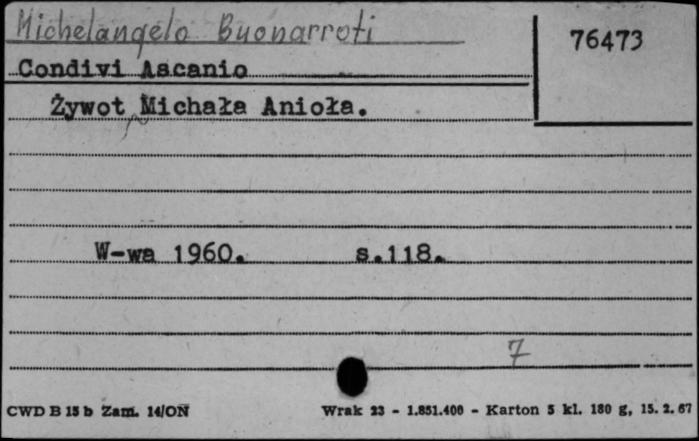 Michelangelo Buonarroti
76473
Condivi Ascanio
Żywot Michała Anioła.
W-wa 1960. s.118.
7
CWD B 15 b Zam. 14/ON Wrak 23 - 1.851.400 - Karton 5 kl. 180 g, 15. 2. 67